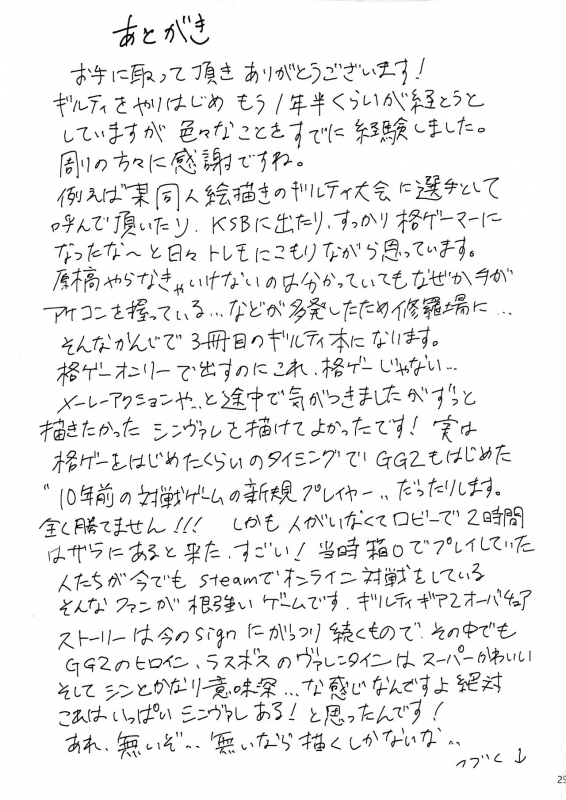 あとがき
お手に取って頂きありがとうございます!
ギルティをやりはじめ もう1年半くらいが経とうと
していますが 色々なことをすでに経験しました。
周りの方々に感謝ですね。
例えば某同人絵描きのギルティ大会に選手として
呼んで頂いたり、KSBに出たり、すっかり格ゲーマーに
なったな〜と日々トレモにこもりながら思っています。
原稿やらなきゃいけないのは分かっていてもなぜか手が
アケコンを握っている…などが多発したため修羅場に…
そんなかんじで3冊目のギルティ本になります。
格ゲーオンリーで出すのにこれ、格ゲーじゃない…
メーレーアクションや…と途中で気がつきましたがずっと
描きたかった シンヴァレを描けてよかったです! 実は
格ゲーをはじめたくらいのタイミングでGG2もはじめた
"10年前の対戦ゲームの新規プレイヤー" だったりします。
全く勝てません!!! しかも人がいなくてロビーで2時間
はザラにあると来た、すごい! 当時箱○でプレイしていた
人たちが今でもsteamでオンライン対戦をしている
そんなファンが根強いゲームです、ギルティギア2オーバチュア
ストーリーは今のsignにがっつり続くもので、その中でも
GG2のヒロイン、ラスボスのヴァレンタインはスーパーかわいい
そしてシンとかなり意味深…な感じなんですよ絶対
これはいっぱいシンヴァレある!と思ったんです!
あれ、無いぞ… 無いなら描くしかないな…
つづく↓
29